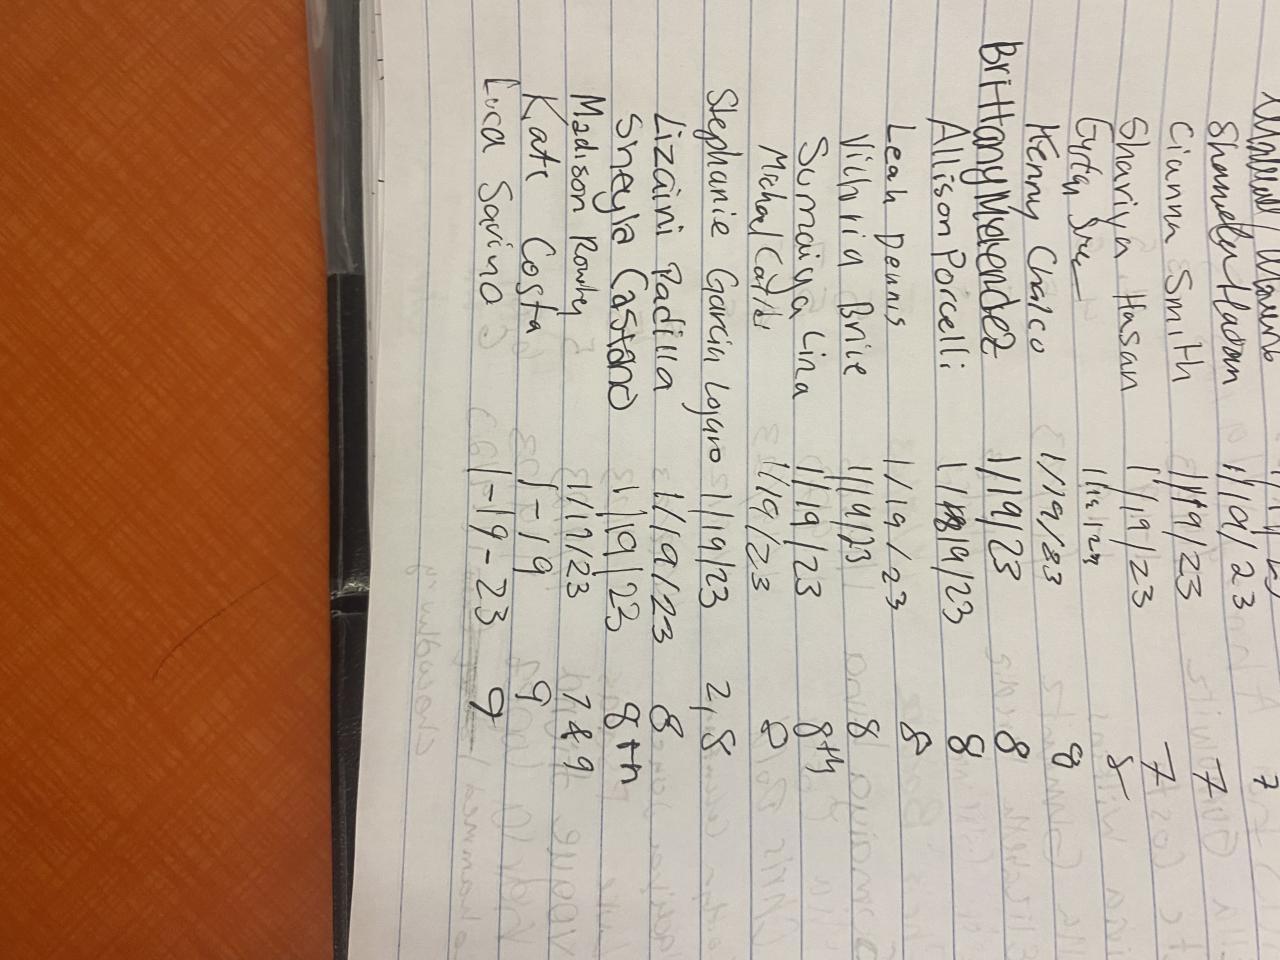 1/19/23 7
Cianna Smith 1/19/23 7
Shariya Hasan 1/19/23 7
8
Kenny Chalco 1/19/23 8
Brittany Melendez 1/19/23 8
Allison Porcelli 1/19/23 8
Leah Dennis 1/19/23 8
Brite 1/19/23 8
Sumaiya Lina 1/19/23 8th
1/19/23 8
Stephanie Garcia 1/19/23 2,8
Lizaini Padilla 1/19/23 8
Sheyla Castano 1/19/23 8th
Madison Rowley 1/19/23 7 & 9
Kate Costa 1-19 9
Luca Savino 1-19-23 9